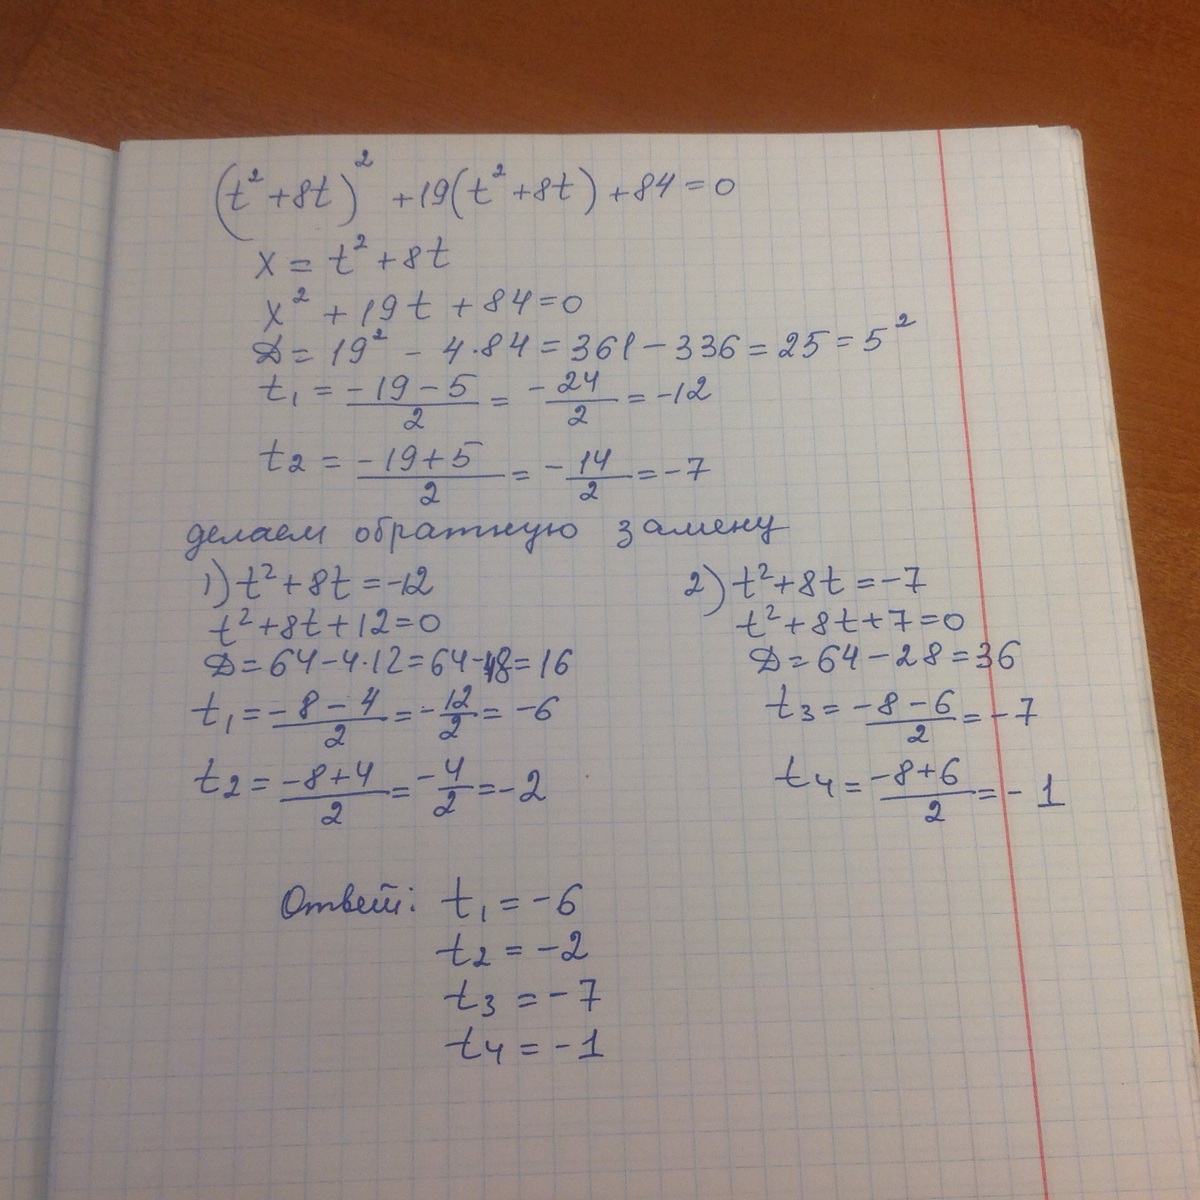 (t² + 8t)² + 19(t² + 8t) + 84 = 0
x = t² + 8t
x² + 19t + 84 = 0
D = 19² - 4·84 = 361 - 336 = 25 = 5²
t₁ = (-19 - 5)/2 = -24/2 = -12
t₂ = (-19 + 5)/2 = -14/2 = -7
делаем обратную замену
1) t² + 8t = -12
t² + 8t + 12 = 0
D = 64 - 4·12 = 64 - 48 = 16
t₁ = (-8 - 4)/2 = -12/2 = -6
t₂ = (-8 + 4)/2 = -4/2 = -2
2) t² + 8t = -7
t² + 8t + 7 = 0
D = 64 - 28 = 36
t₃ = (-8 - 6)/2 = -7
t₄ = (-8 + 6)/2 = -1
Ответ: t₁ = -6
t₂ = -2
t₃ = -7
t₄ = -1